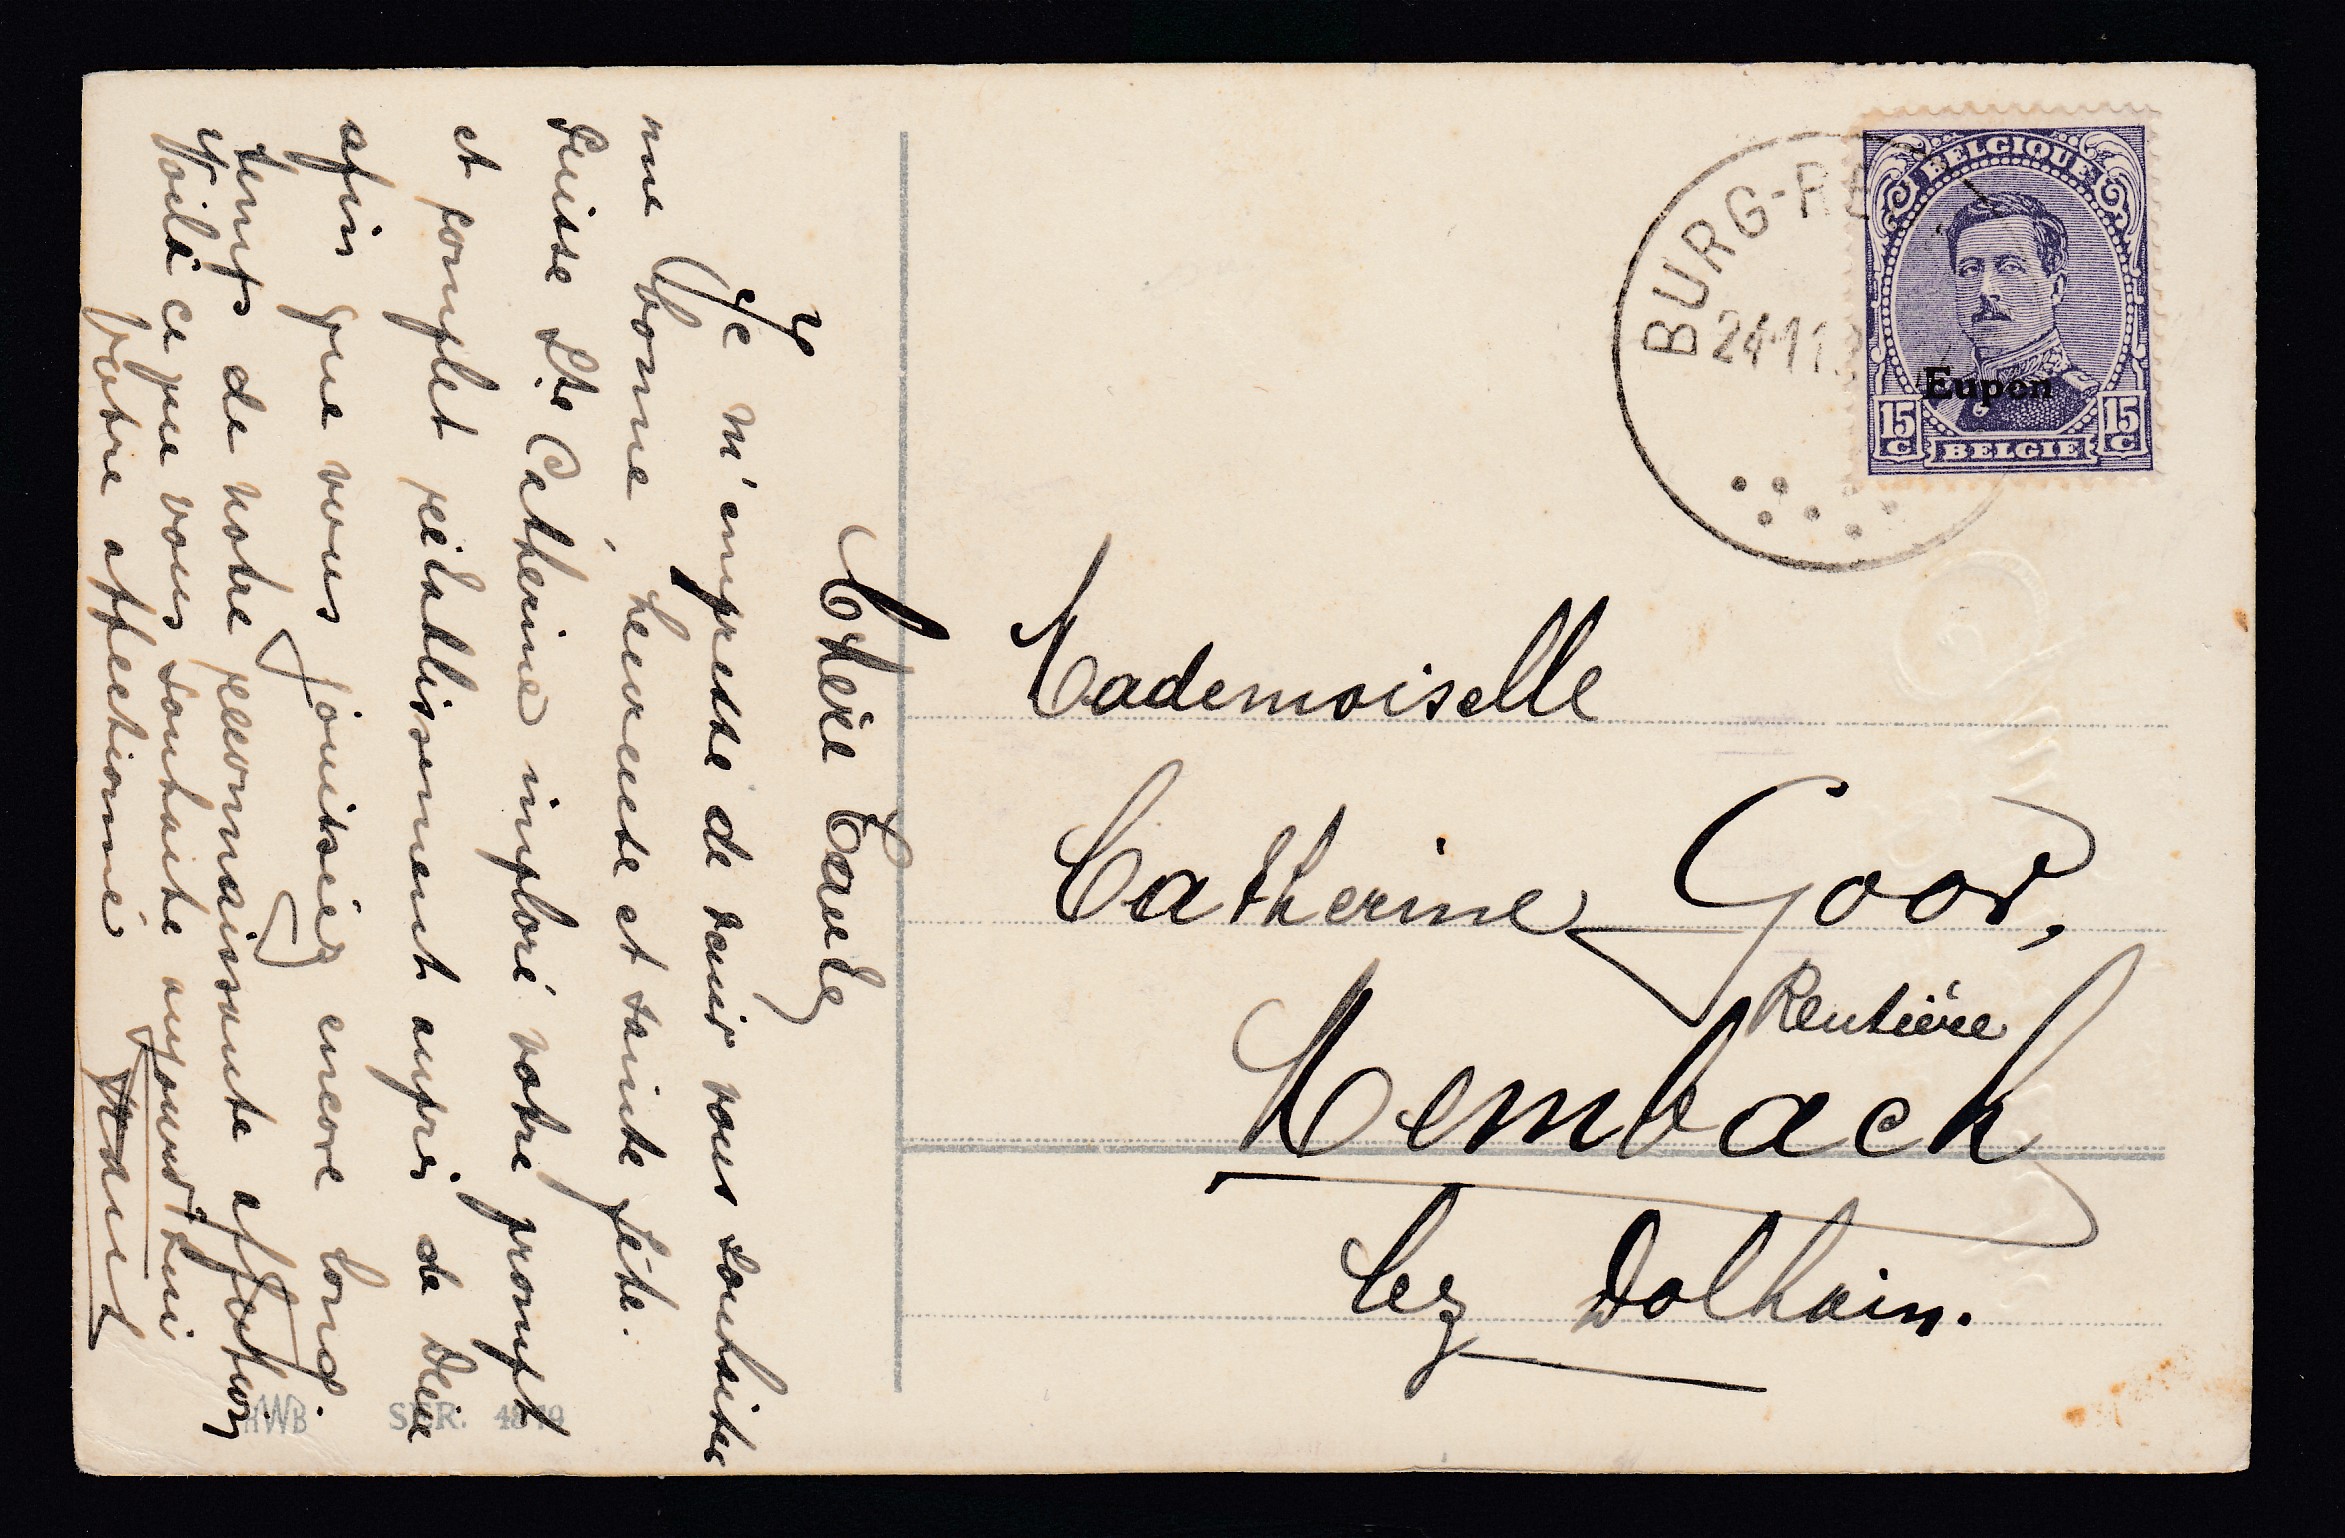 Chère Tante
Je m'empresse de venir vous souhaiter
une bonne, heureuse et sainte fête.
Puisse Ste Catherine imploré votre prompt
et complet rétablissement auprès de Dieu
afin que vous jouissiez encore long.
temps de notre reconnaissante affection
Voilà ce que vous souhaite aujourd'hui
votre affectionné
HWB SER. 4819
BURG-RE
24 11
BELGIQUE
Eupen
15 C 15 C
BELGIE
Mademoiselle
Catherine Goor,
Rentière
Membach
lez Dolhain.